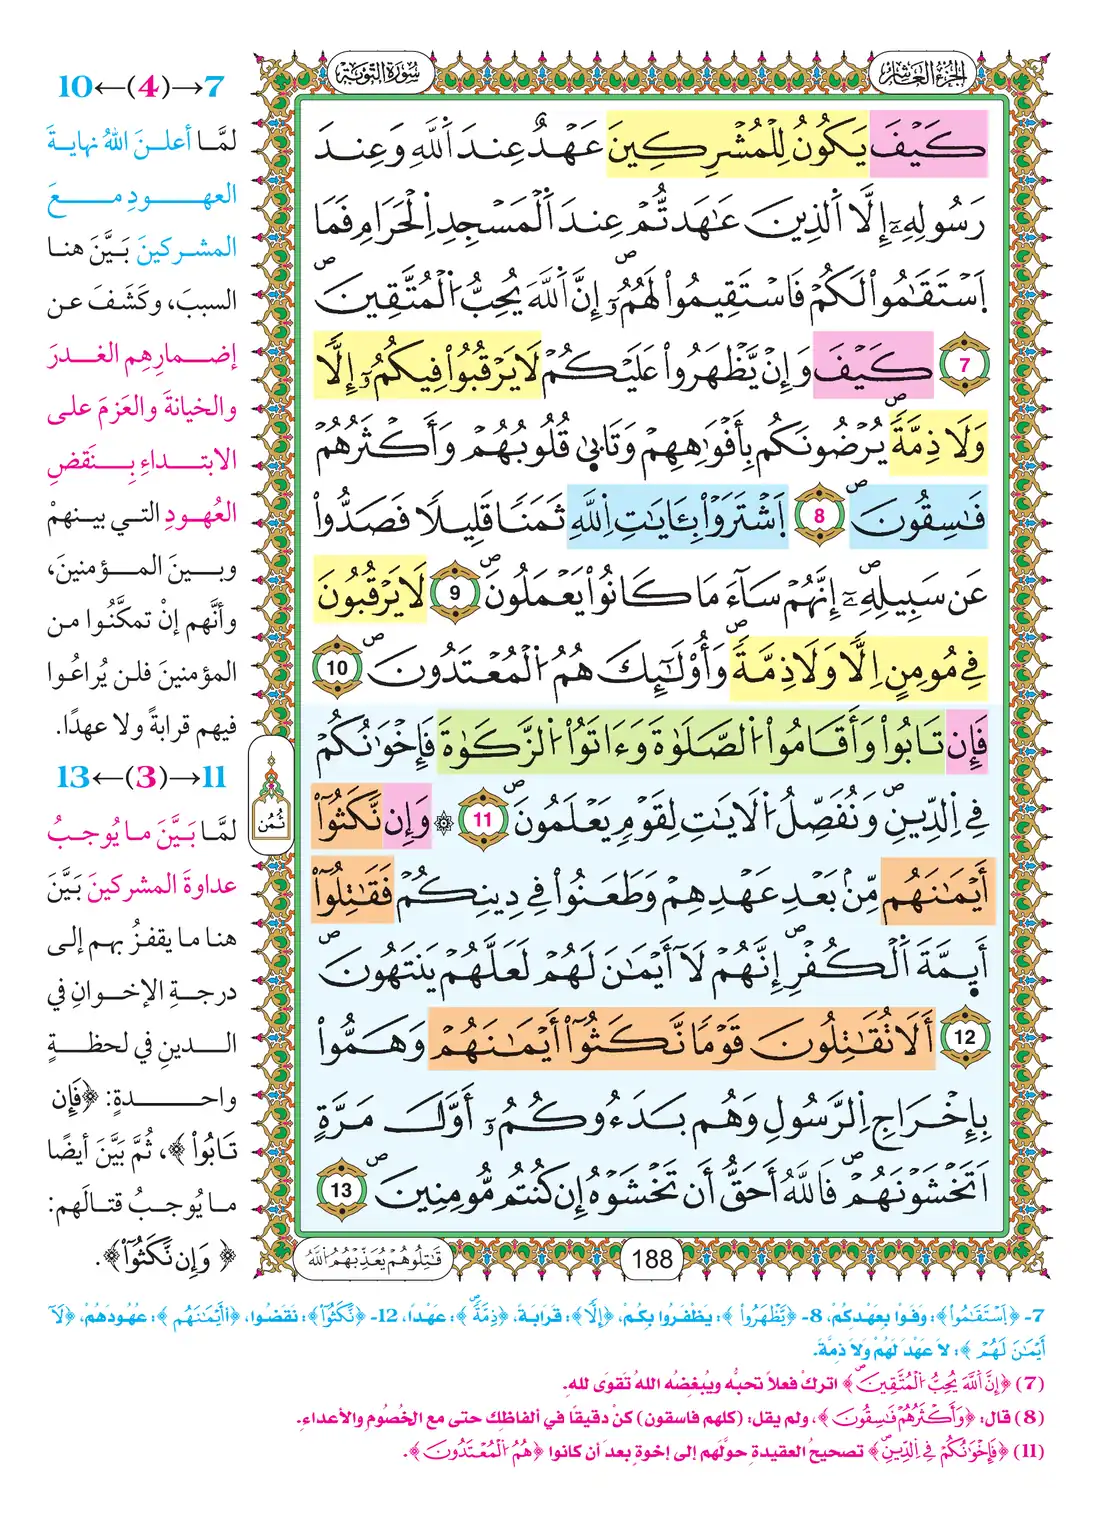 الجزء العاشر
سورة التوبة
كَيْفَ يَكُونُ لِلْمُشْرِكِينَ عَهْدٌ عِندَ اَ۬للَّهِ وَعِندَ
رَسُولِهِۦٓ إِلَّا اَ۬لذِينَ عَٰهَدتُّمْ عِندَ اَ۬لْمَسْجِدِ اِ۬لْحَرَامِ فَمَا
اَ۪سْتَقَٰمُواْ لَكُمْ فَاسْتَقِيمُواْ لَهُمُۥٓ إِنَّ اَ۬للَّهَ يُحِبُّ اُ۬لْمُتَّقِينَ
7 كَيْفَ وَإِنْ يَّظْهَرُواْ عَلَيْكُمْ لَا يَرْقُبُواْ فِيكُمُۥٓ إِلّٗا
وَلَا ذِمَّةٗ يُرْضُونَكُم بِأَفْوَٰهِهِمْ وَتَأْب۪ىٰ قُلُوبُهُمْ وَأَكْثَرُهُمْ
فَٰسِقُونَ 8 اَ۪شْتَرَوْاْ بِـَٔايَٰتِ اِ۬للَّهِ ثَمَنٗا قَلِيلٗا فَصَدُّواْ
عَن سَبِيلِهِۦٓ إِنَّهُمْ سَآءَ مَا كَانُواْ يَعْمَلُونَ 9 لَا يَرْقُبُونَ
فِے مُومِنٍ اِلّٗا وَلَا ذِمَّةٗ وَأُوْلَٰٓئِكَ هُمُ اُ۬لْمُعْتَدُونَ 10
فَإِن تَابُواْ وَأَقَامُواْ اُ۬لصَّلَوٰةَ وَءَاتَوُاْ اُ۬لزَّكَوٰةَ فَإِخْوَٰنُكُمْ
فِے اِ۬لدِّينِ وَنُفَصِّلُ اُ۬لَايَٰتِ لِقَوْمٖ يَعْلَمُونَ 11 ۞ وَإِن نَّكَثُوٓاْ
أَيْمَٰنَهُم مِّنۢ بَعْدِ عَهْدِهِمْ وَطَعَنُواْ فِے دِينِكُمْ فَقَٰتِلُوٓاْ
أَيِمَّةَ اَ۬لْكُفْرِ إِنَّهُمْ لَآ أَيْمَٰنَ لَهُمْ لَعَلَّهُمْ يَنتَهُونَ
12 أَلَا تُقَٰتِلُونَ قَوْمٗا نَّكَثُوٓاْ أَيْمَٰنَهُمْ وَهَمُّواْ
بِإِخْرَاجِ اِ۬لرَّسُولِ وَهُم بَدَءُوكُمُۥٓ أَوَّلَ مَرَّةٍ
اَتَخْشَوْنَهُمْ فَاللَّهُ أَحَقُّ أَن تَخْشَوْهُ إِن كُنتُم مُّومِنِينَ 13
ثمن
قَٰتِلُوهُمْ يُعَذِّبْهُمُ اُ۬للَّهُ
188
7→(4)←10
لمَّا أعلنَ اللهُ نهايةَ
العهودِ معَ
المشركينَ بَيَّنَ هنا
السببَ، وكَشَفَ عن
إضمارِهِم الغدرَ
والخيانةَ والعَزمَ على
الابتداءِ بِنَقضِ
العُهودِ التي بينهمْ
وبينَ المؤمنينَ،
وأنَّهم إنْ تمكَّنُوا من
المؤمنينَ فلن يُراعُوا
فيهم قرابةً ولا عهدًا.
11→(3)←13
لمَّا بَيَّنَ ما يُوجبُ
عداوةَ المشركينَ بَيَّنَ
هنا ما يقفزُ بهم إلى
درجةِ الإخوانِ في
الدينِ في لحظةٍ
واحدةٍ: ﴿فَإِن
تَابُواْ﴾، ثُمَّ بَيَّنَ أيضًا
ما يُوجبُ قتالَهم:
﴿وَإِن نَّكَثُوٓاْ﴾.
7- ﴿اَ۪سْتَقَٰمُواْ﴾: وفَوا بِعَهْدِكُمْ، 8- ﴿يَّظْهَرُواْ﴾: يَظْفَرُوا بِكُمْ، ﴿إِلّٗا﴾: قَرابَةً، ﴿ذِمَّةٗ﴾: عَهْدًا، 12- ﴿نَّكَثُوٓاْ﴾: نَقَضُوا، ﴿أَيْمَٰنَهُم﴾: عُهُودَهُمْ، ﴿لَآ
أَيْمَٰنَ لَهُمْ﴾: لا عَهْدَ لَهُمْ وَلا ذِمَّةَ.
(7) ﴿إِنَّ اَ۬للَّهَ يُحِبُّ اُ۬لْمُتَّقِينَ﴾ اتركْ فعلًا تحبُّه ويُبغضُه اللهُ تَقوَى للهِ.
(8) قال: ﴿وَأَكْثَرُهُمْ فَٰسِقُونَ﴾، ولم يقل: (كلهم فاسقون) كنْ دقيقًا في ألفاظِك حتى مع الخُصُومِ والأعداءِ.
(11) ﴿فَإِخْوَٰنُكُمْ فِے اِ۬لدِّينِ﴾ تصحيحُ العقيدةِ حوَّلَهم إلى إخوةٍ بعدَ أن كانوا ﴿هُمُ اُ۬لْمُعْتَدُونَ﴾.